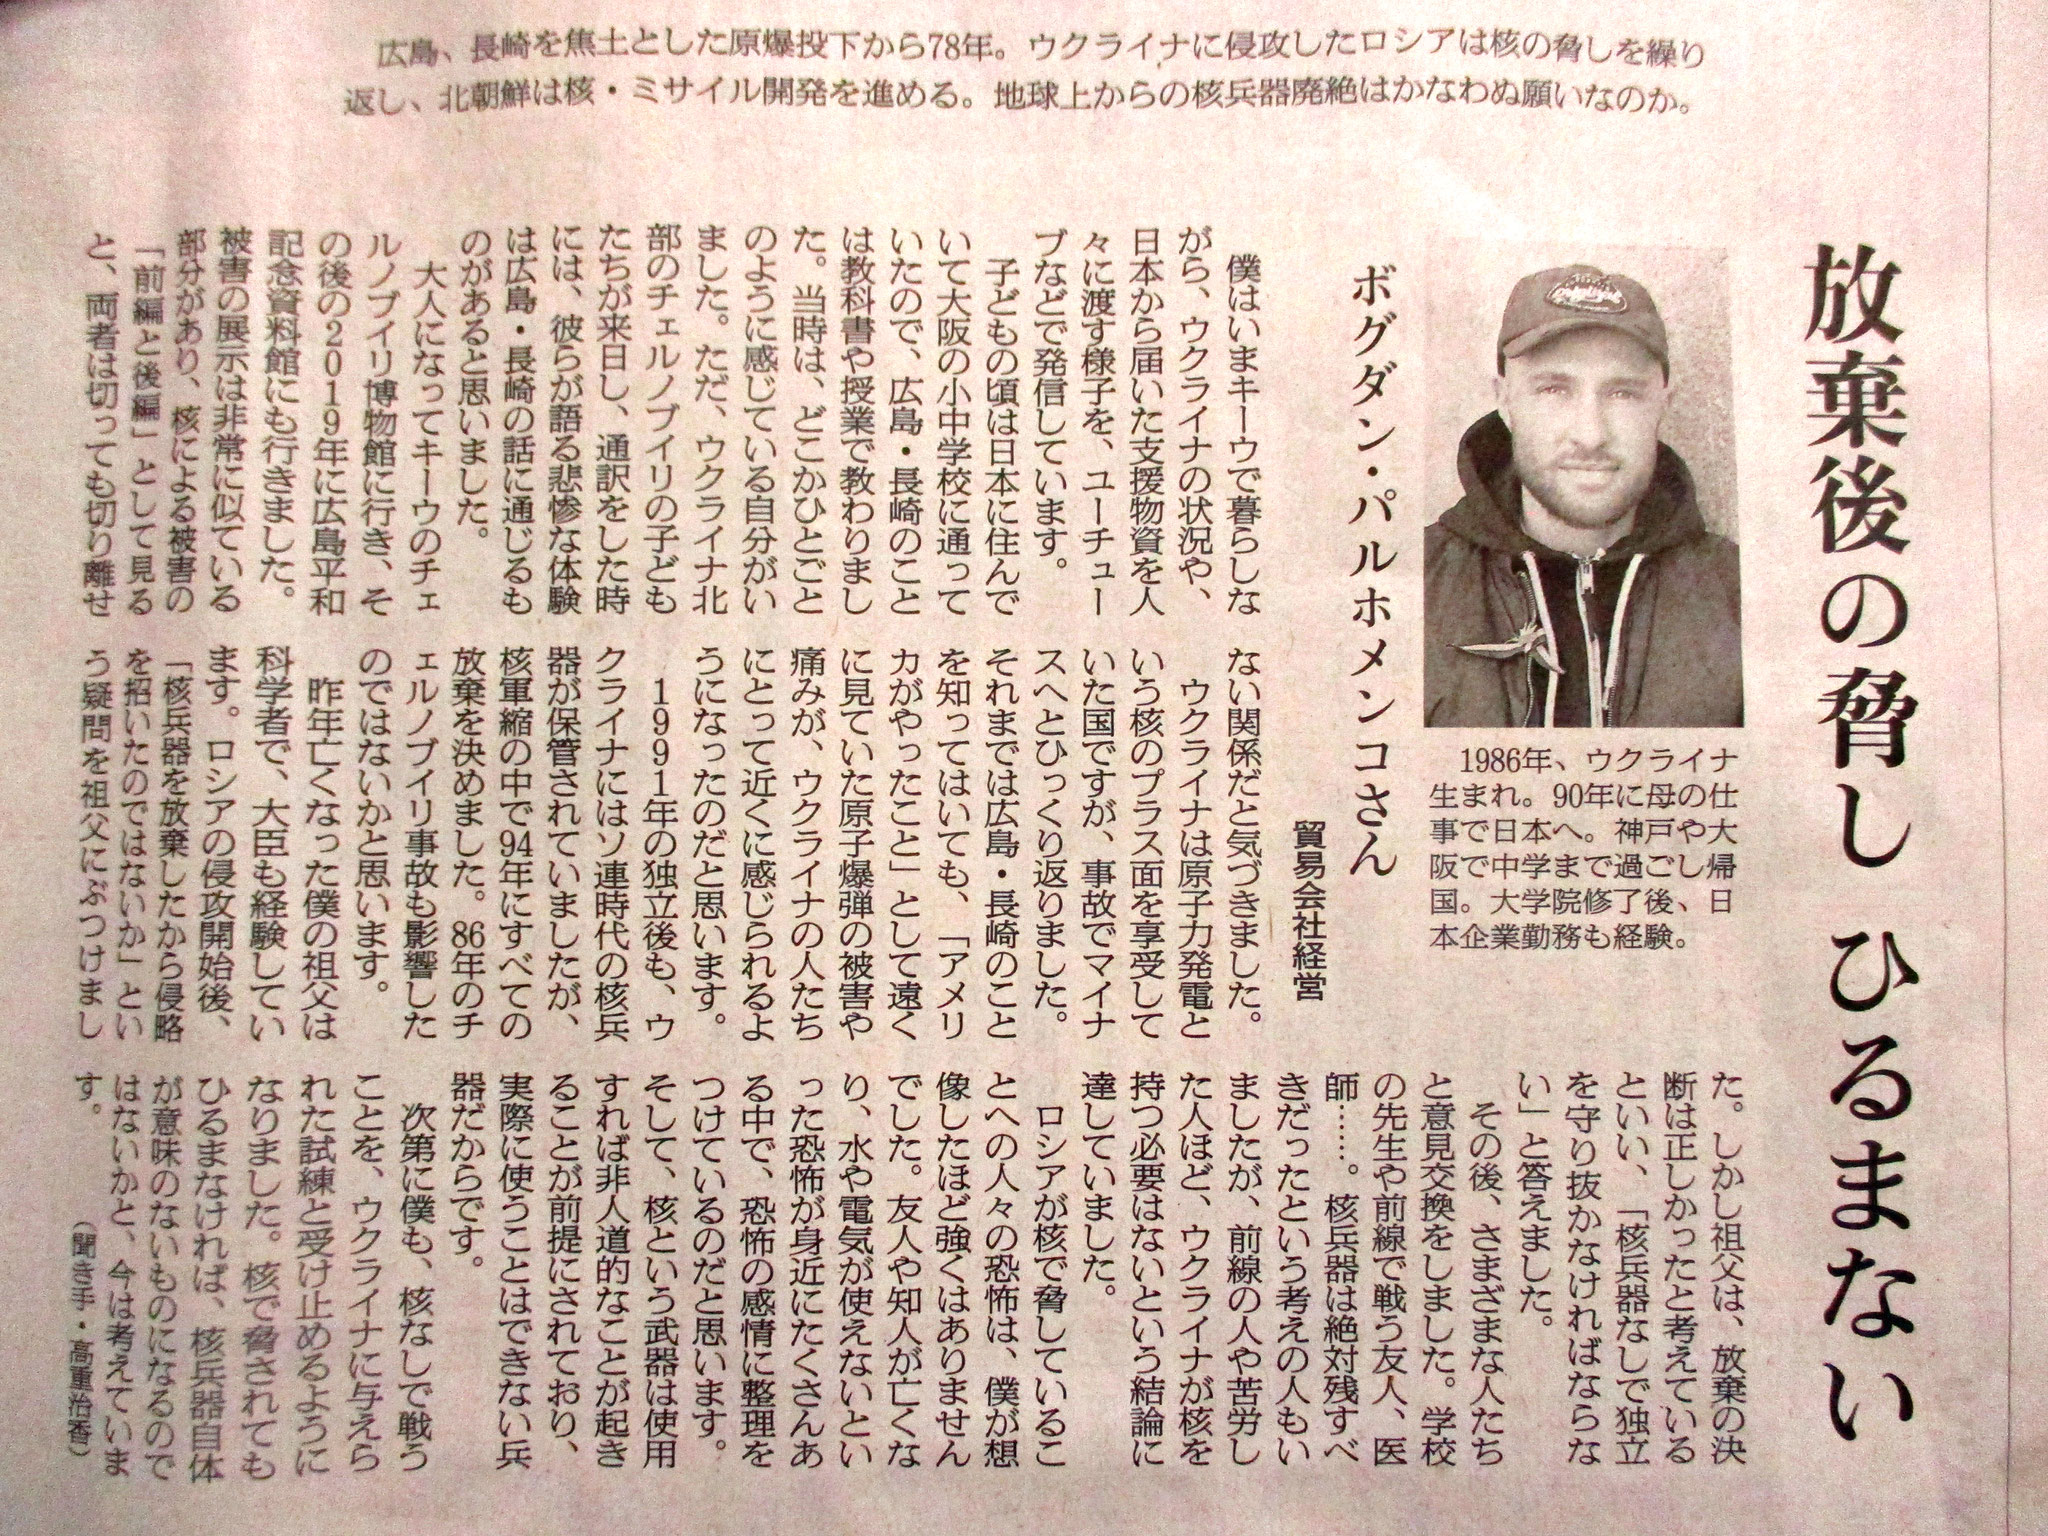 広島、長崎を焦土とした原爆投下から78年。ウクライナに侵攻したロシアは核の脅しを繰り
返し、北朝鮮は核・ミサイル開発を進める。地球上からの核兵器廃絶はかなわぬ願いなのか。
放棄後の脅し ひるまない
1986年、ウクライナ
生まれ。90年に母の仕
事で日本へ。神戸や大
阪で中学まで過ごし帰
国。大学院修了後、日
本企業勤務も経験。
ボグダン・パルホメンコさん
貿易会社経営
僕はいまキーウで暮らしな
がら、ウクライナの状況や、
日本から届いた支援物資を人
々に渡す様子を、ユーチュー
ブなどで発信しています。
子どもの頃は日本に住んで
いて大阪の小中学校に通って
いたので、広島・長崎のこと
は教科書や授業で教わりまし
た。当時は、どこかひとごと
のように感じている自分がい
ました。ただ、ウクライナ北
部のチェルノブイリの子ども
たちが来日し、通訳をした時
には、彼らが語る悲惨な体験
は広島・長崎の話に通じるも
のがあると思いました。
大人になってキーウのチェ
ルノブイリ博物館に行き、そ
の後の2019年に広島平和
記念資料館にも行きました。
被害の展示は非常に似ている
部分があり、核による被害の
「前編と後編」として見る
と、両者は切っても切り離せ
ない関係だと気づきました。
ウクライナは原子力発電と
いう核のプラス面を享受して
いた国ですが、事故でマイナ
スへとひっくり返りました。
それまでは広島・長崎のこと
を知ってはいても、「アメリ
カがやったこと」として遠く
に見ていた原子爆弾の被害や
痛みが、ウクライナの人たち
にとって近くに感じられるよ
うになったのだと思います。
1991年の独立後も、ウ
クライナにはソ連時代の核兵
器が保管されていましたが、
核軍縮の中で94年にすべての
放棄を決めました。86年のチ
ェルノブイリ事故も影響した
のではないかと思います。
昨年亡くなった僕の祖父は
科学者で、大臣も経験してい
ます。ロシアの侵攻開始後、
「核兵器を放棄したから侵略
を招いたのではないか」とい
う疑問を祖父にぶつけまし
た。しかし祖父は、放棄の決
断は正しかったと考えている
といい、「核兵器なしで独立
を守り抜かなければならな
い」と答えました。
その後、さまざまな人たち
と意見交換をしました。学校
の先生や前線で戦う友人、医
師……。核兵器は絶対残すべ
きだったという考えの人もい
ましたが、前線の人や苦労し
た人ほど、ウクライナが核を
持つ必要はないという結論に
達していました。
ロシアが核で脅しているこ
とへの人々の恐怖は、僕が想
像したほど強くはありません
でした。友人や知人が亡くな
り、水や電気が使えないとい
った恐怖が身近にたくさんあ
る中で、恐怖の感情に整理を
つけているのだと思います。
そして、核という武器は使用
すれば非人道的なことが起き
ることが前提にされており、
実際に使うことはできない兵
器だからです。
次第に僕も、核なしで戦う
ことを、ウクライナに与えら
れた試練と受け止めるように
なりました。核で脅されても
ひるまなければ、核兵器自体
が意味のないものになるので
はないかと、今は考えていま
す。
（聞き手・高重治香）